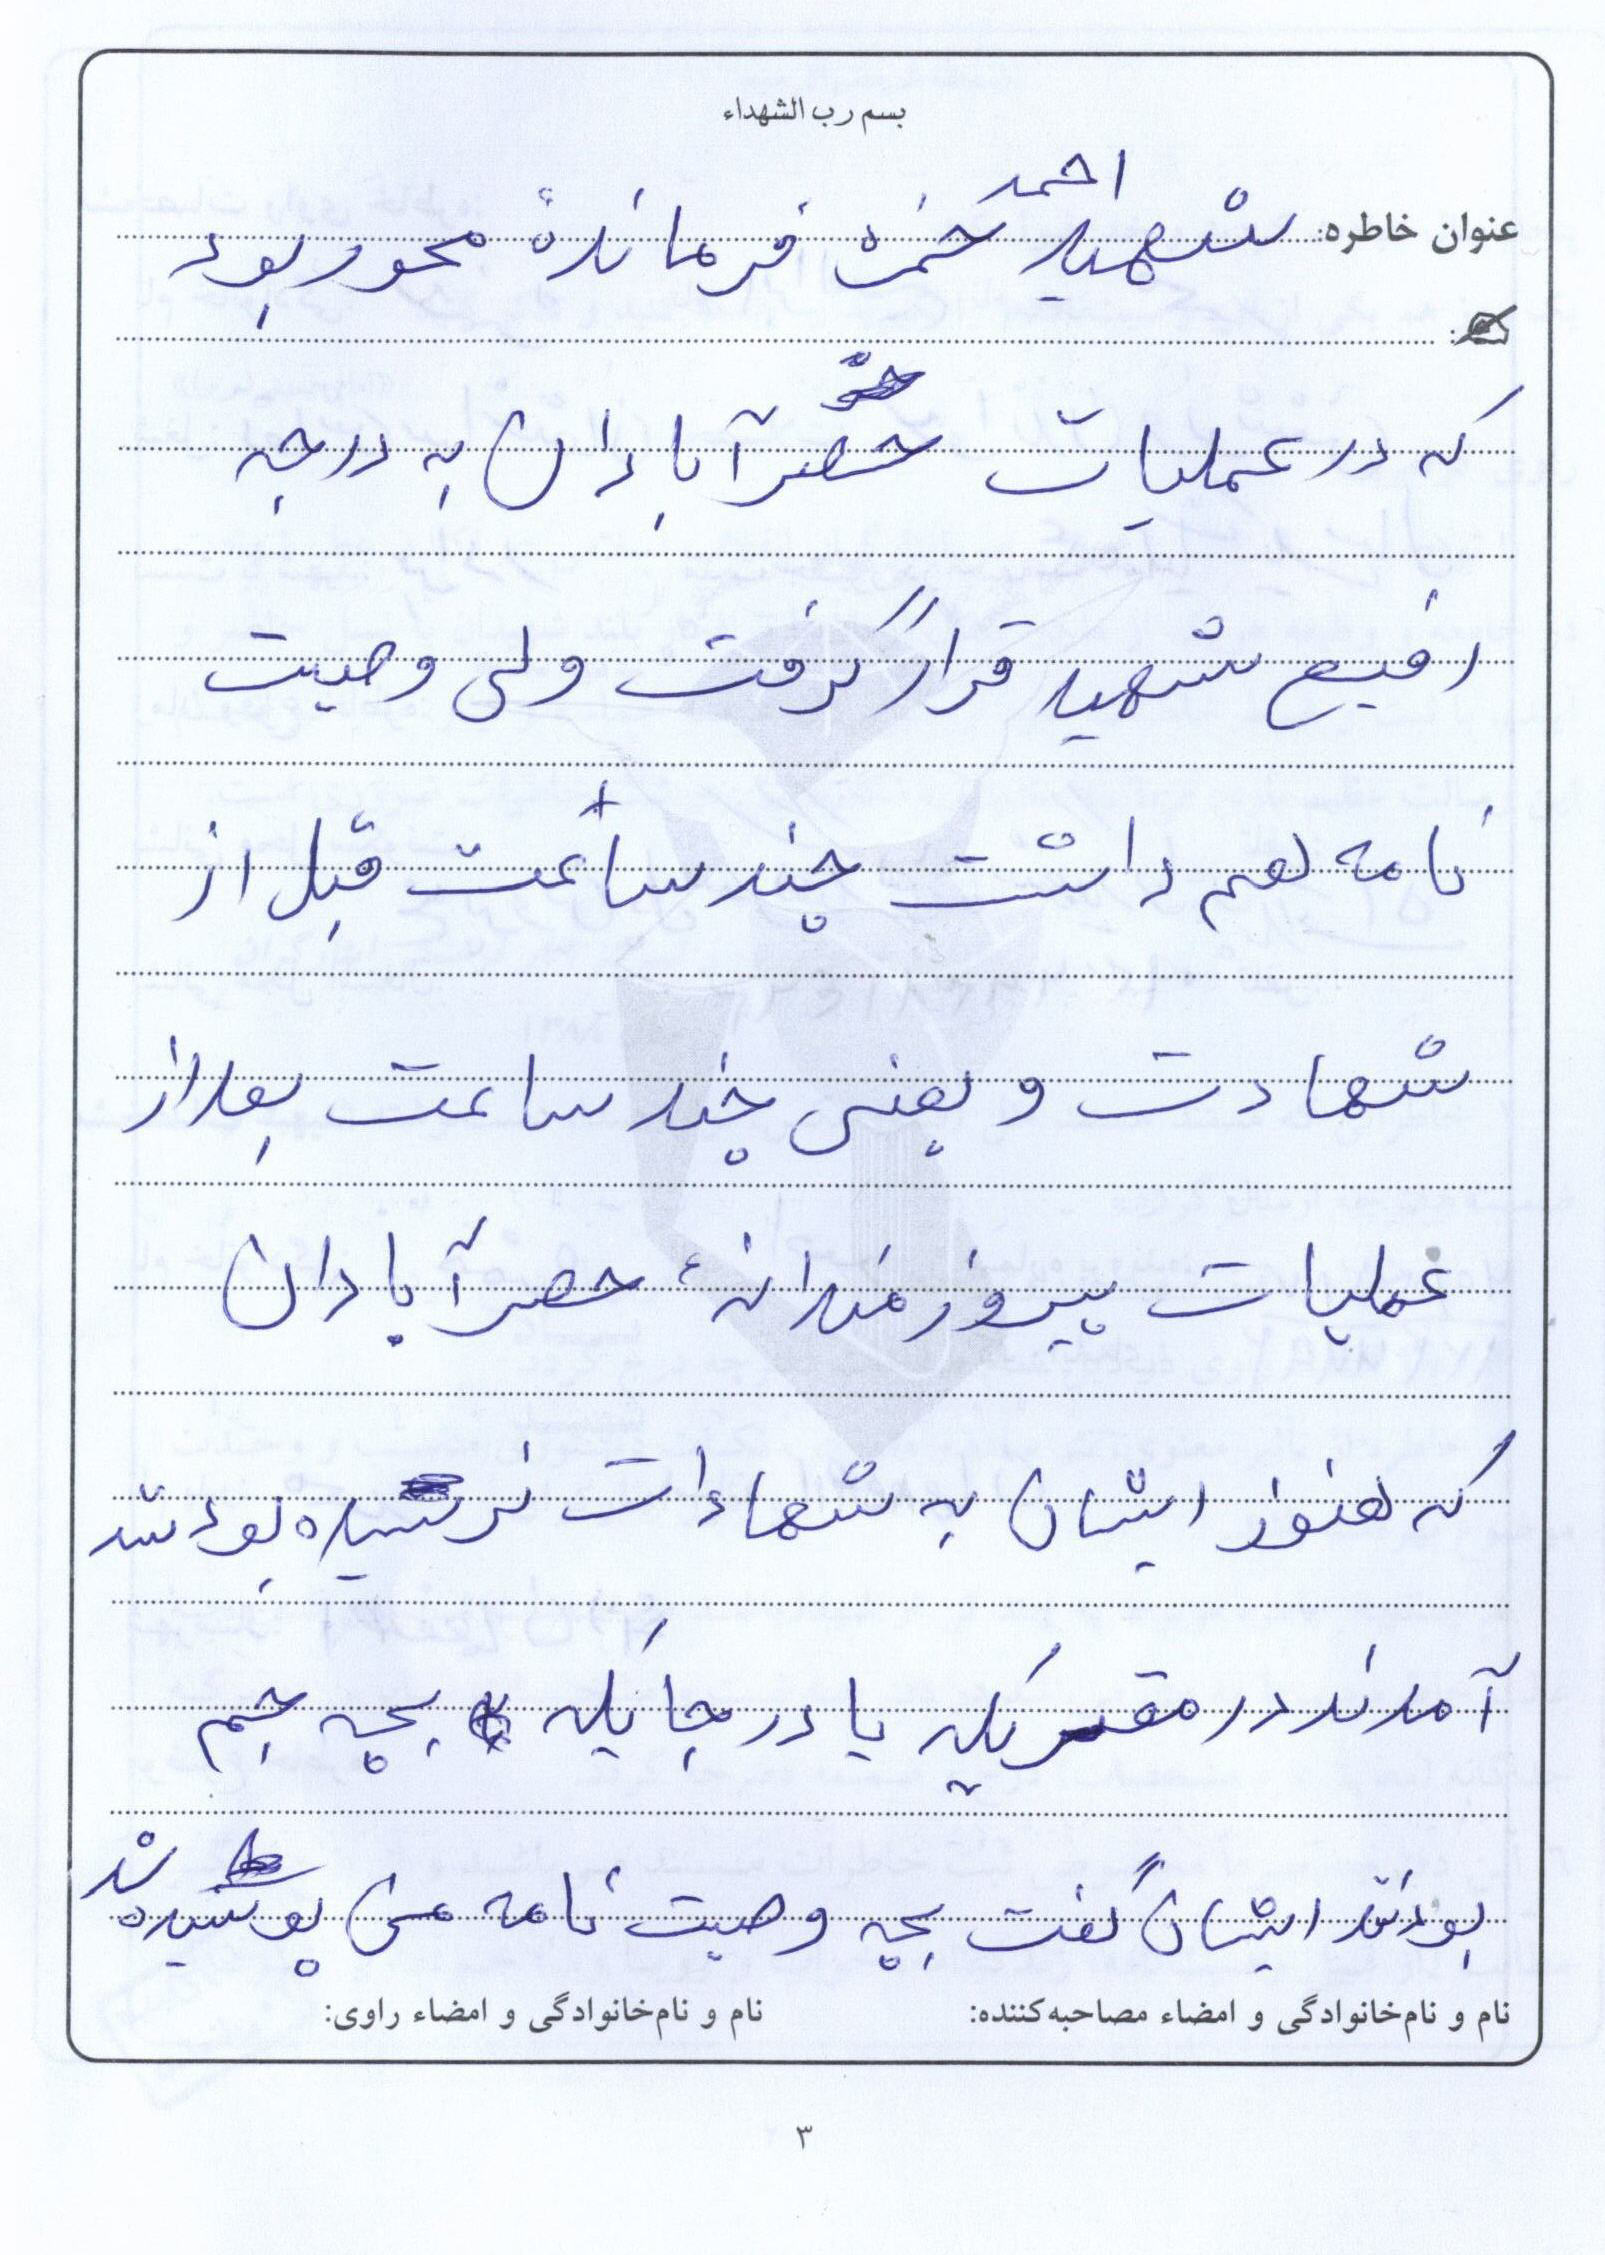 بسم رب الشهداء
احمد
عنوان خاطره: شهید حمزه فرماندهٔ محور بود
که در عملیات حصر آبادان به درجه
رفیع شهید قرار گرفت ولی وصیت
نامه هم داشت چند ساعت قبل از
شهادت و یعنی چند ساعت بعد از
عملیات پیروزمندانهٔ حصر آبادان
که هنوز ایشان به شهادات نرسیده بود شد
آمدند در مقر یکیه یا در جا یکیه بچه جم
بودند ایشان گفت بچه وصیت نامه من پوسیده ند
نام و نام‌خانوادگی و امضاء مصاحبه‌کننده: نام و نام‌خانوادگی و امضاء راوی:
۳